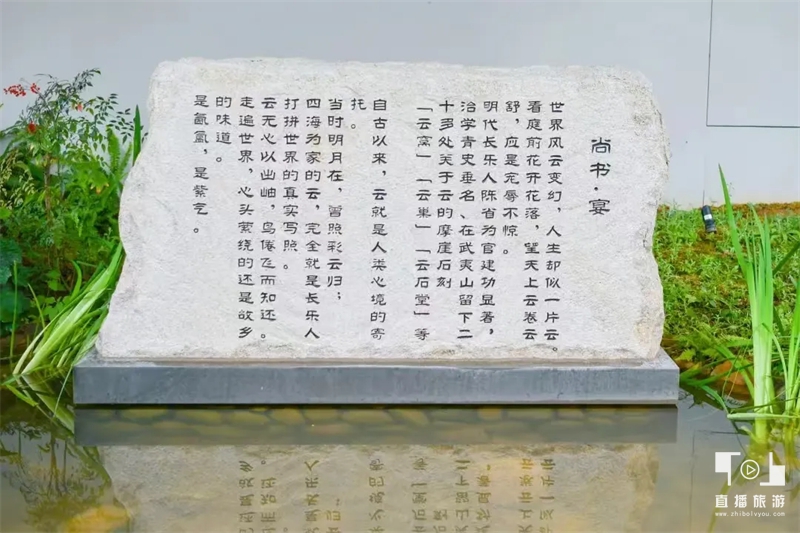 尚书·宴
世界风云变幻，人生却似一片云。
看庭前花开花落，望天上云卷云
舒，应是宠辱不惊。
明代长乐人陈省为官建功显著，
治学青史垂名、在武夷山留下二
十多处关于云的摩崖石刻
「云窝」「云巢」「云石堂」等
自古以来，云就是人类心境的寄
托。
当时明月在，曾照彩云归；
四海为家的云，完全就是长乐人
打拼世界的真实写照。
云无心以出岫，鸟倦飞而知还。
走遍世界，心头萦绕的还是故乡
的味道。
是氤氲，是紫气。
直播旅游
www.zhibolvyou.com